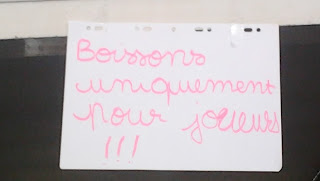 Boissons
uniquement
pour joueurs
!!!